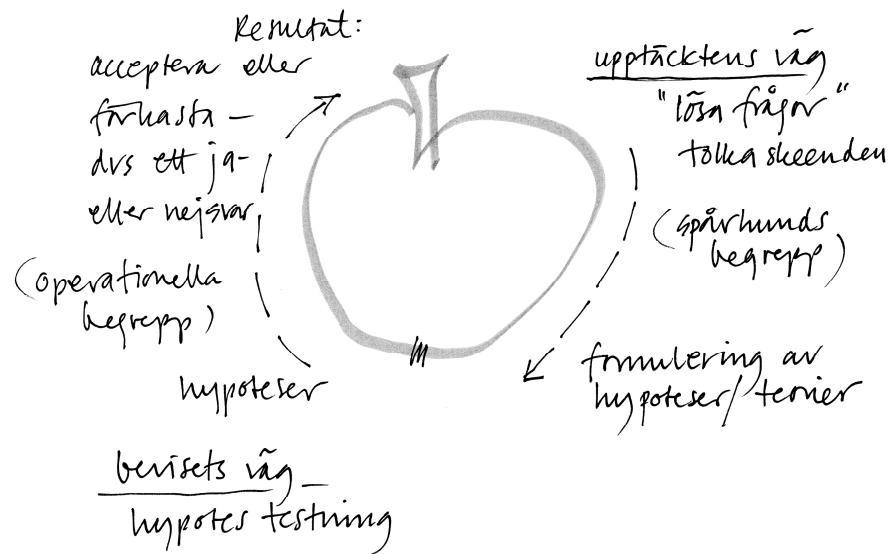 Resultat:
acceptera eller
förkasta –
dvs ett ja-
eller nejsvar
(operationella
begrepp)
hypoteser
bevisets väg –
hypotes testning
upptäcktens väg
"lösa frågor"
tolka skeenden
(spårhunds
begrepp)
formulering av
hypoteser/teorier